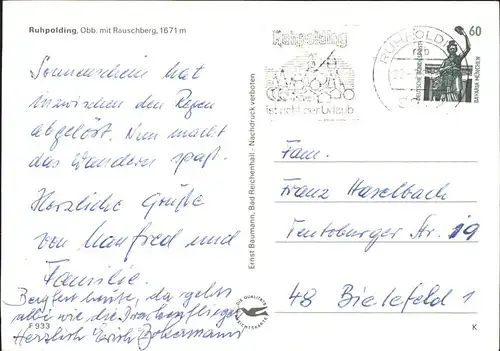 Ruhpolding, Obb. mit Rauschberg, 1671 m
Sonnenschein hat
inzwischen den Regen
abgelöst. Nun macht
das Wandern spaß.
Herzliche Grüße
von Manfred und
Familie.
Bergfest heute, da geht
alle wie die
Herzlich Erich
F 933
Ernst Baumann, Bad Reichenhall - Nachdruck verboten
Ruhpolding
ist echter Urlaub
RUHPOLDING
60
DEUTSCHE BUNDESPOST
BAVARIA MÜNCHEN
Fam.
Franz Haselbach
Teutoburger Str. 19
48 Bielefeld 1
K